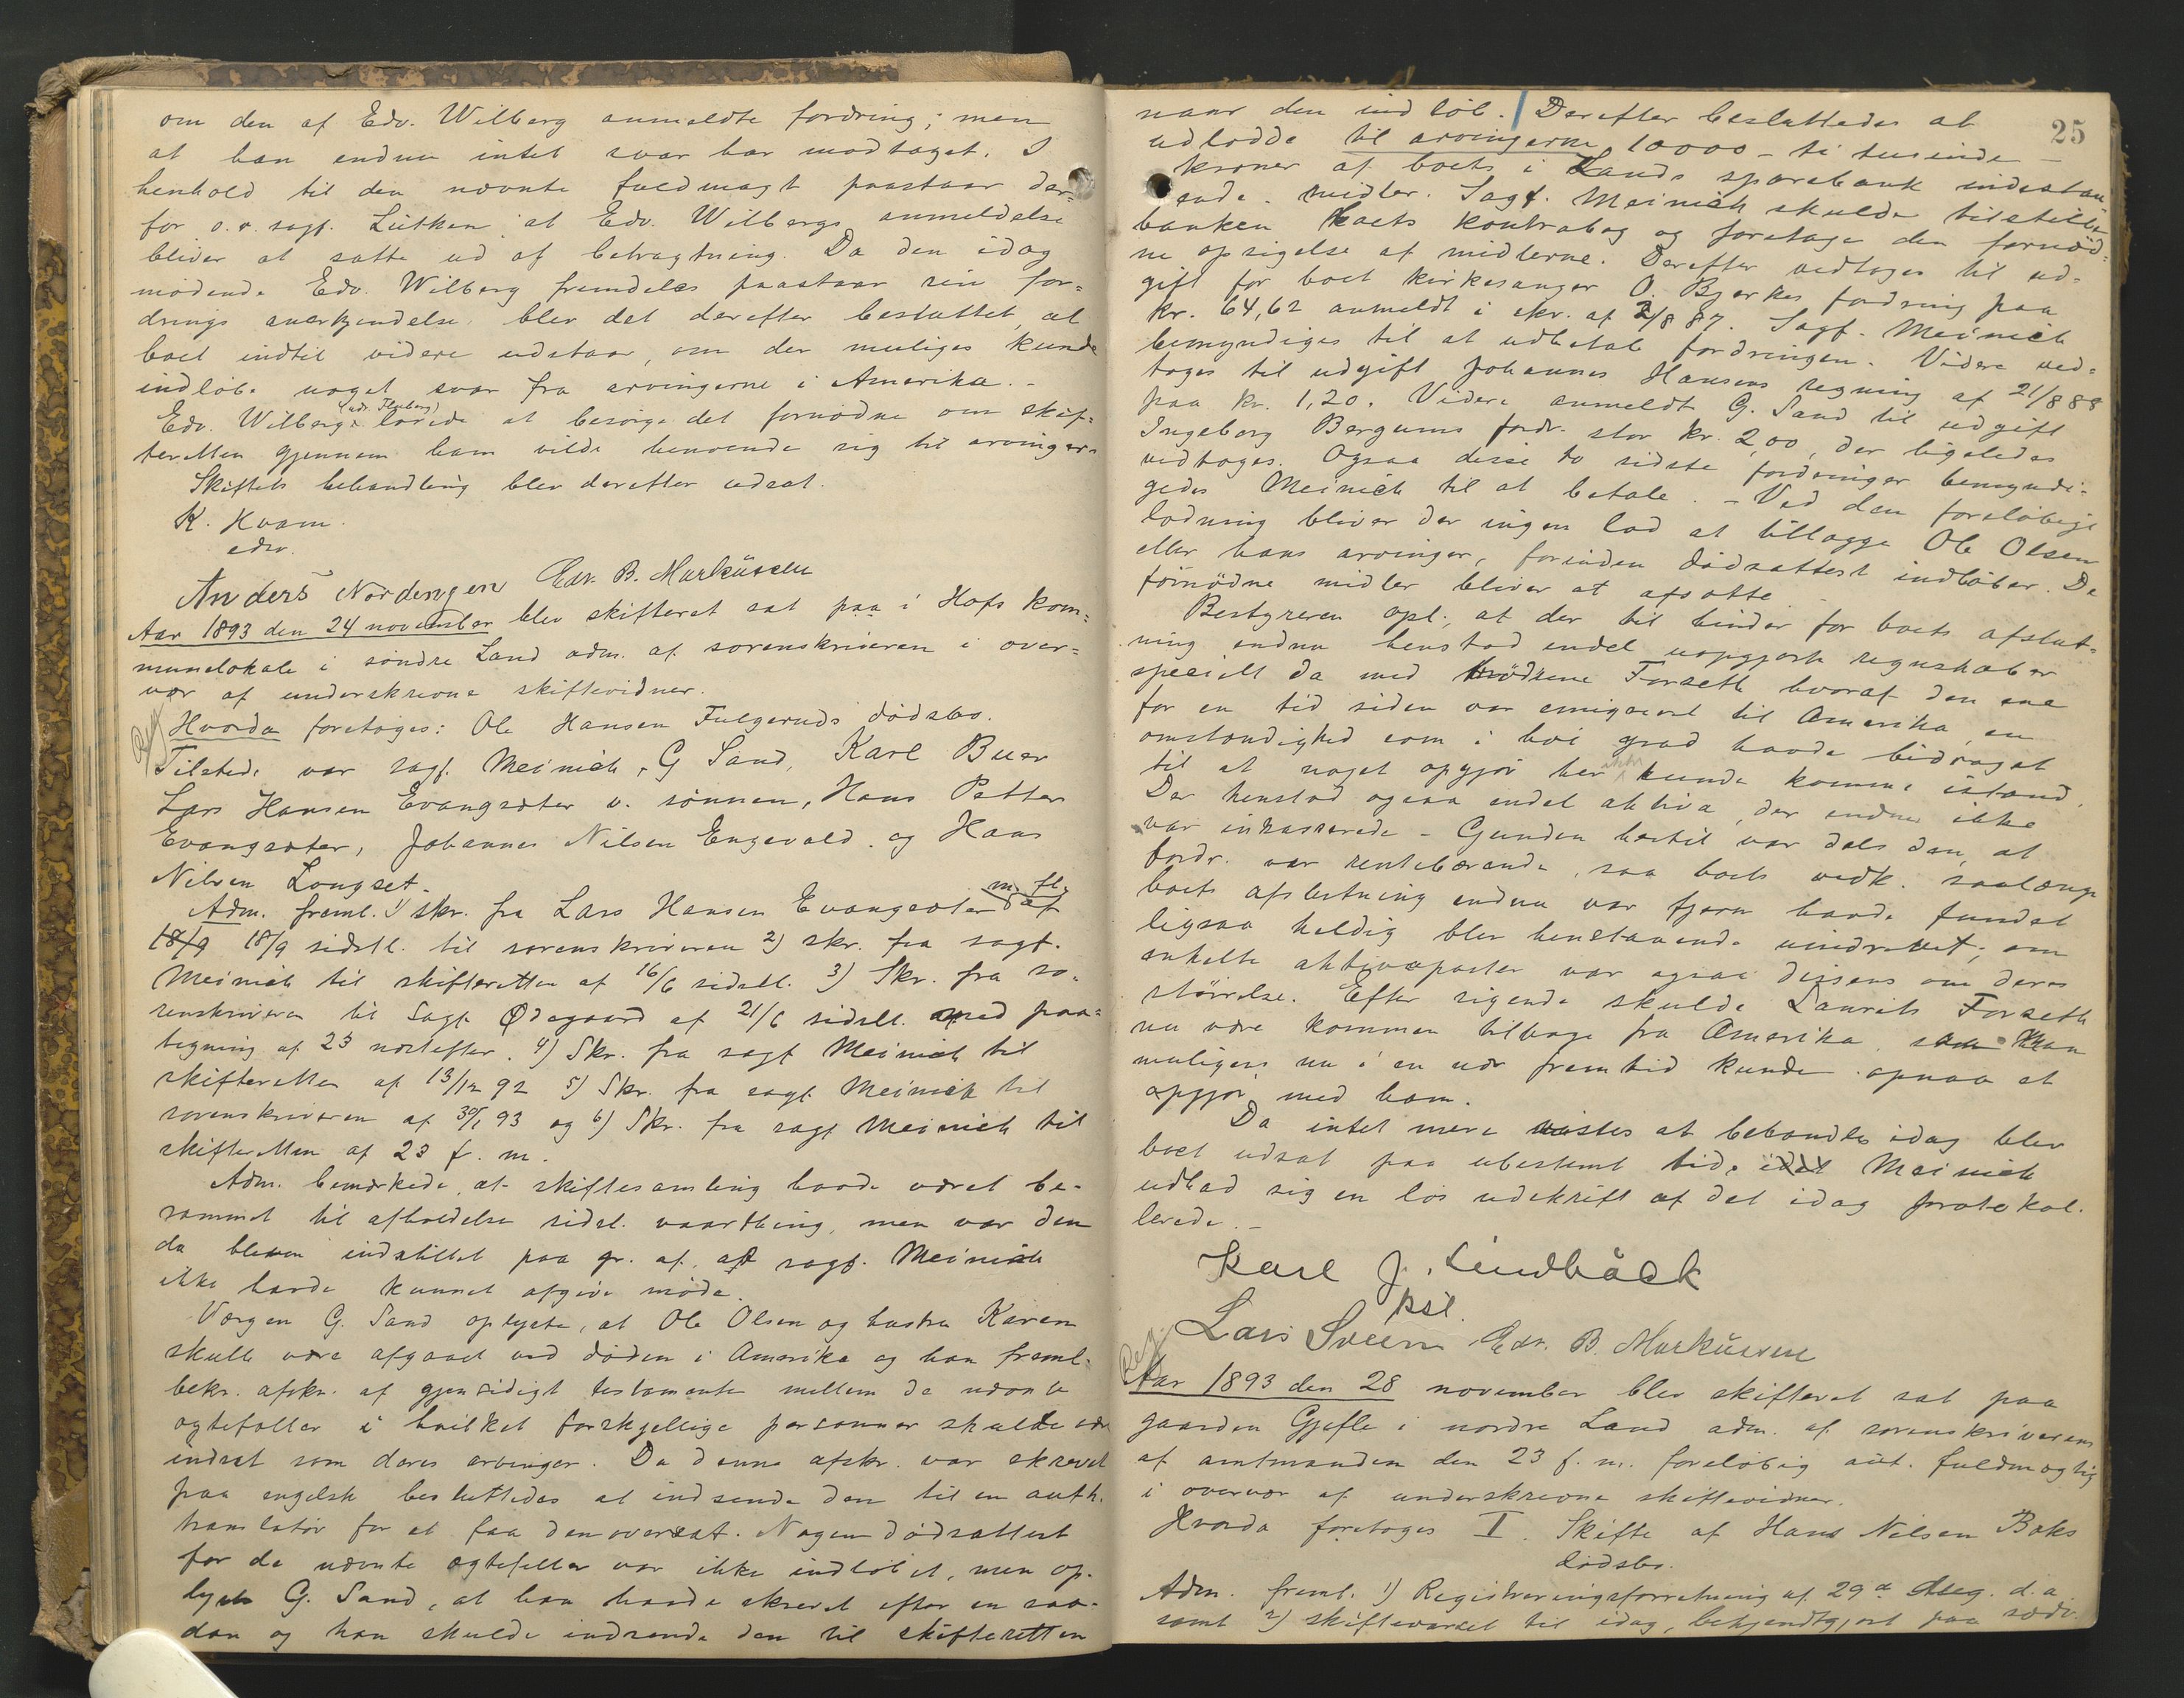 om den af Edv. Wilberg anmeldte fordring; men
at han endnu intet svar har modtaget. I
henhold til den nævnte fuldmagt paastaar der-
for o.r.sagf. Lütken at Edv. Wilbergs anmeldelse
bliver at sætte ud af betragtning. Da den idag
mödende Edv. Wilberg fremdeles paastaar sin for=
drings anerkjendelse, blev det derefter besluttet, at
boet indtil videre udstaar, om der muliges kunde
indlöbe noget svar fra arvingerne i Amerika. -
Edv. Wilberg lovede at besörge det fornödne om skif=
teretten gjennem ham vilde henvende sig til arvingerne
Skiftets behandling blev derefter udsat.
K. Hvam.
edsv.
Anders Nordengen Edv. B. Markussen
Aar 1893 den 24 november blev skifteret sat paa i Hofs kom=
munelokale i söndre Land adm. af sorenskriveren i over=
vær af underskrevne skiftevidner.
Reg
Hvorda foretoges: Ole Hansen Fulgeruds dödsbo.
Tilstede var sagf. Meinich, G Sand, Karl Buer
Lars Hansen Evangsæter v. sönnen, Hans Petter
Evangsæter, Johannes Nilsen Engevold og Hans
Nilsen Longset.
Adm. freml. 1) skr. fra Lars Hansen Evangsæter m. fl. af
18/9 18/9 sidstl. til sorenskriveren 2) skr. fra sagf.
Meinich til skifteretten af 16/6 sidstl. 3) Skr. fra so-
renskriveren til Sagf. Ødegaard af 21/6 sidstl. med paa=
tegning af 23 næstefter. 4) Skr. fra sagf Meinich til
skifteretten af 13/12 92 5) Skr. fra sagf. Meinich til
sorenskriveren af 30/1 93 og 6) Skr. fra sagf Meinich til
skifteretten af 23 f. m.
Adm. bemærkede, at skiftesamling havde været be-
rammet til afholdelse sidstl. vaarthing, men var den
da bleven indstillet paa gr. af, at sagf. Meinich
ikke havde kunnet afgive möde.
Værgen G. Sand oplyste, at Ole Olsen og hustru Karen
skulle være afgaaet ved döden i Amerika og han freml.
bekr. afskr. af gjensidigt testamente mellem de nævnte
ægtefæller i hvilket forskjellige personner skulde være
indsat som deres arvinger. Da denne afskr. var skrevet
paa engelsk besluttedes at indsende den til en auth.
translatör for at faa den oversat. Nogen dödsattest
for de nævnte ægtefæller var ikke indlöbet, men op-
lyste G. Sand, at han havde skrevet efter en saa-
dan og han skulde indsende den til skifteretten
25
naar den indlöb. Derefter besluttedes at
udlodde til arvingerne 10000 - ti tusinde -
kroner af boets i Lands sparebank indestaa=
ende midler. Sagf. Meinich skulde tilstille
banken boets kontrabog og foretage den fornöd=
ne opsigelse af midlerne. Derefter vedtoges til ud=
gift for boet kirkesanger O. Bjerkes fordring paa
kr. 64,62 anmeldt i skr. af 2/8 87. Sagf. Meinich
bemyndiges til at udbetale fordringen. Videre ved=
toges til udgift Johannes Hansens regning af 21/8 88
paa kr. 1,20. Videre anmeldte G. Sand til udgift
Ingeborg Bergums fordr. stor kr. 2,00, der ligeledes
vedtoges. Ogsaa disse to sidste fordringer bemyndi=
gedes Meinich til at betale. - Ved den forelöbige
lodning bliver der ingen lod at tillægge Ole Olsen
eller hans arvinger, forinden dödsattest indlöber. De
fornödne midler bliver at afsætte
Bestyreren opl., at der til hinder for boets afslut=
ning endnu henstod endel uopgjorte regnskaber
specielt da med brödrene Forseth hvoraf den ene
for en tid siden var emigreret til Amerika, en
omstændighed som i höi grad havde bidraget
til at noget opgjör her ikke kunde komme istand.
Der henstod ogsaa endel aktiva, der endnu ikke
var inkasserede - Grunden hertil var dels den, at
fordr. var rentebærende, saa boets vedk. saalænge
boets afslutning endnu var fjern havde fundet
ligsaa heldig blev henstaaende uinddrevet; om
enkelte aktivaposter var ogsaa dissens om deres
störrelse. Efter sigende skulde Laurits Forseth
nu være kommen tilbage fra Amerika, saa man
muligens nu i en nær fremtid kunde opnaa et
opgjör med ham.
Da intet mere vistes at behandles idag blev
boet udsat paa ubestemt tid, idet Meinich
udbad sig en lös udskrift af det idag protokol.
lerede. -
Karl J. Lindbäck
kst.
Lars Sveen Edv. B. Markussen
Reg.
Aar 1893 den 28 november blev skifteret sat paa
gaarden Gjefle i nordre Land adm. af sorenskriverens
af amtmanden den 23 f. m. forelöbig aut. fuldmægtig
i overvær af underskrevne skiftevidner.
Hvorda foretoges I. Skifte af Hans Nilsen Baks
dödsbo.
Adm. freml. 1) Registreringsforretning af 29d Aug. d. a.
samt 2) skiftevarsel til idag, bekjendtgjort paa sædv.